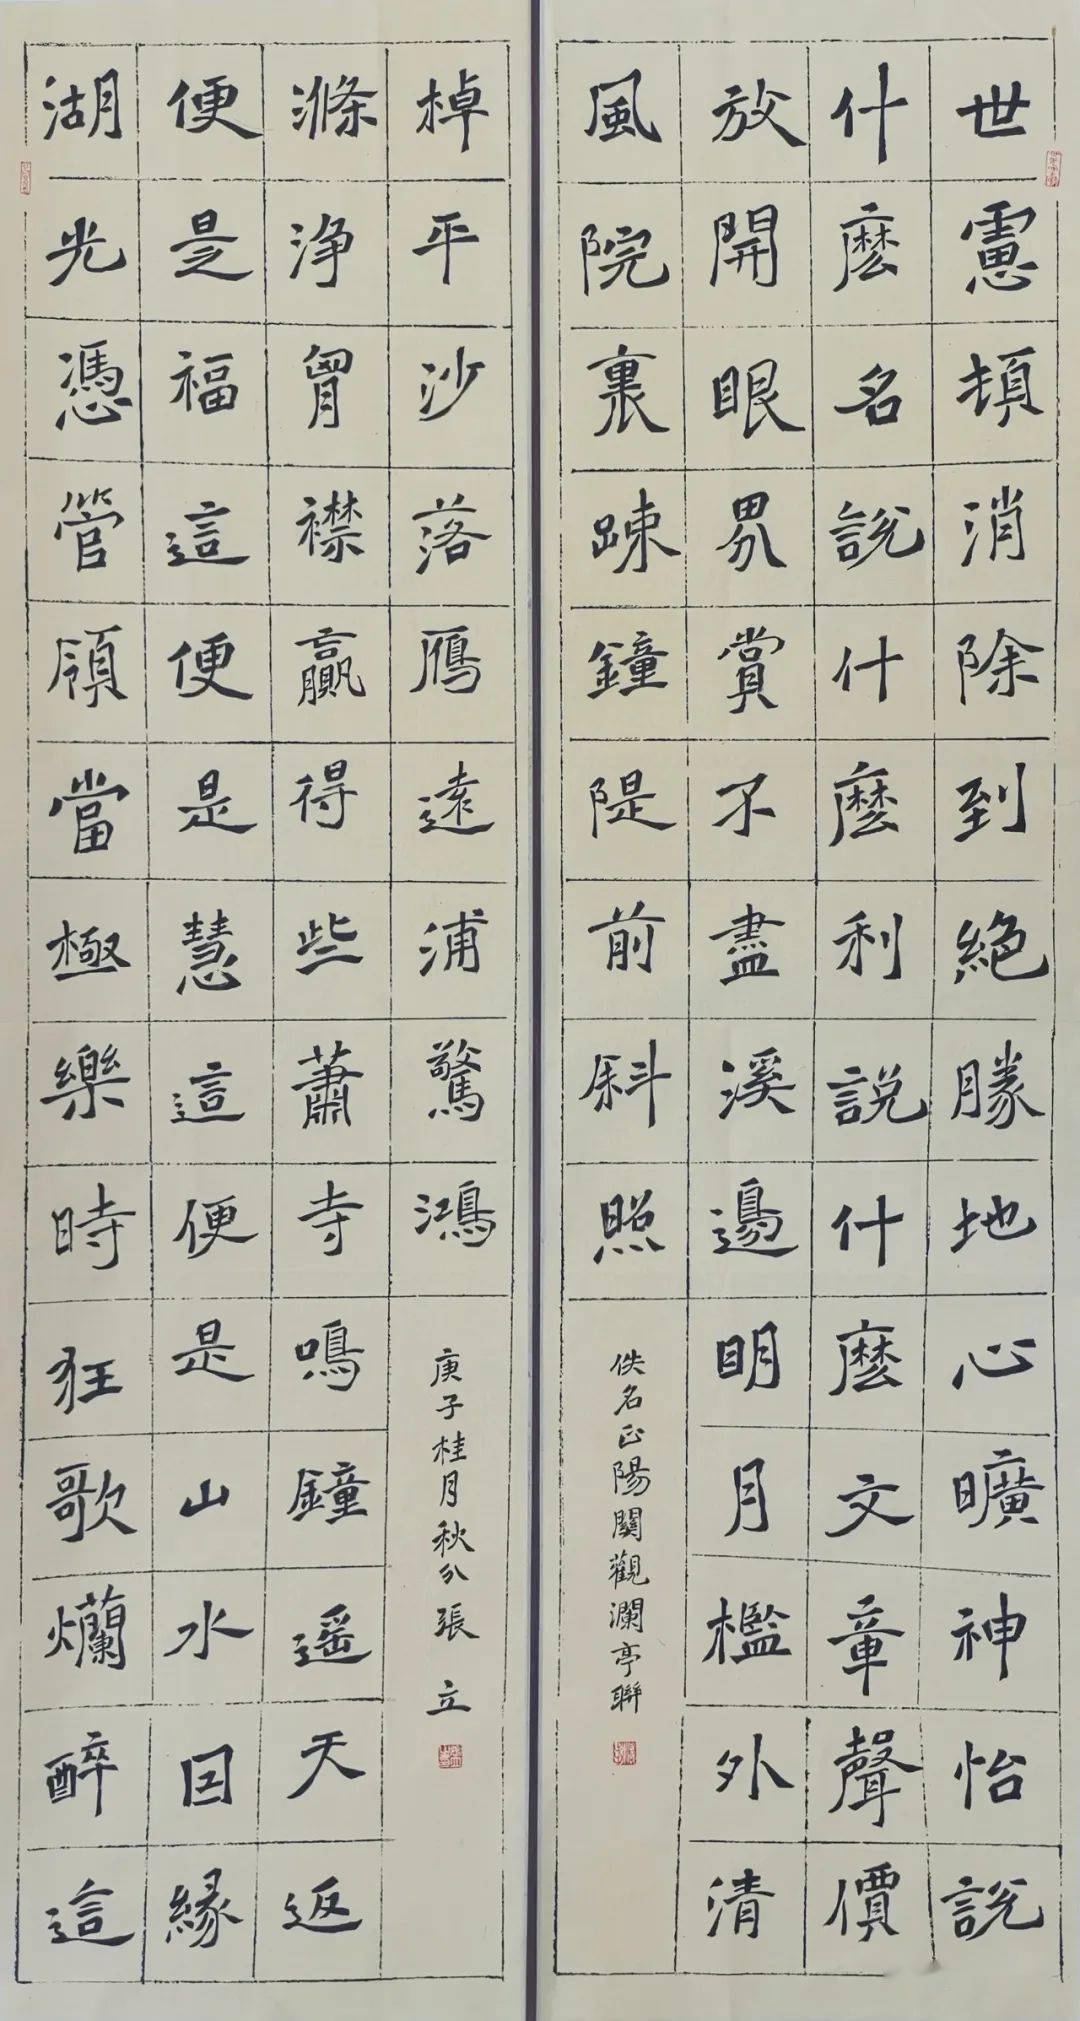 世慮頓消除到絶勝地心曠神怡說
什麼名說什麼利說什麼文章聲價
放開眼界賞不盡溪邊明月檻外清
風院裏踈鐘隄前斜照
佚名正陽關觀瀾亭聯
湖光憑管領當極樂時狂歌爛醉這
便是福這便是慧這便是山水囙緣
滌浄胷襟贏得些蕭寺鳴鐘遥天返
棹平沙落鴈遠浦驚鴻
庚子桂月秋分張立